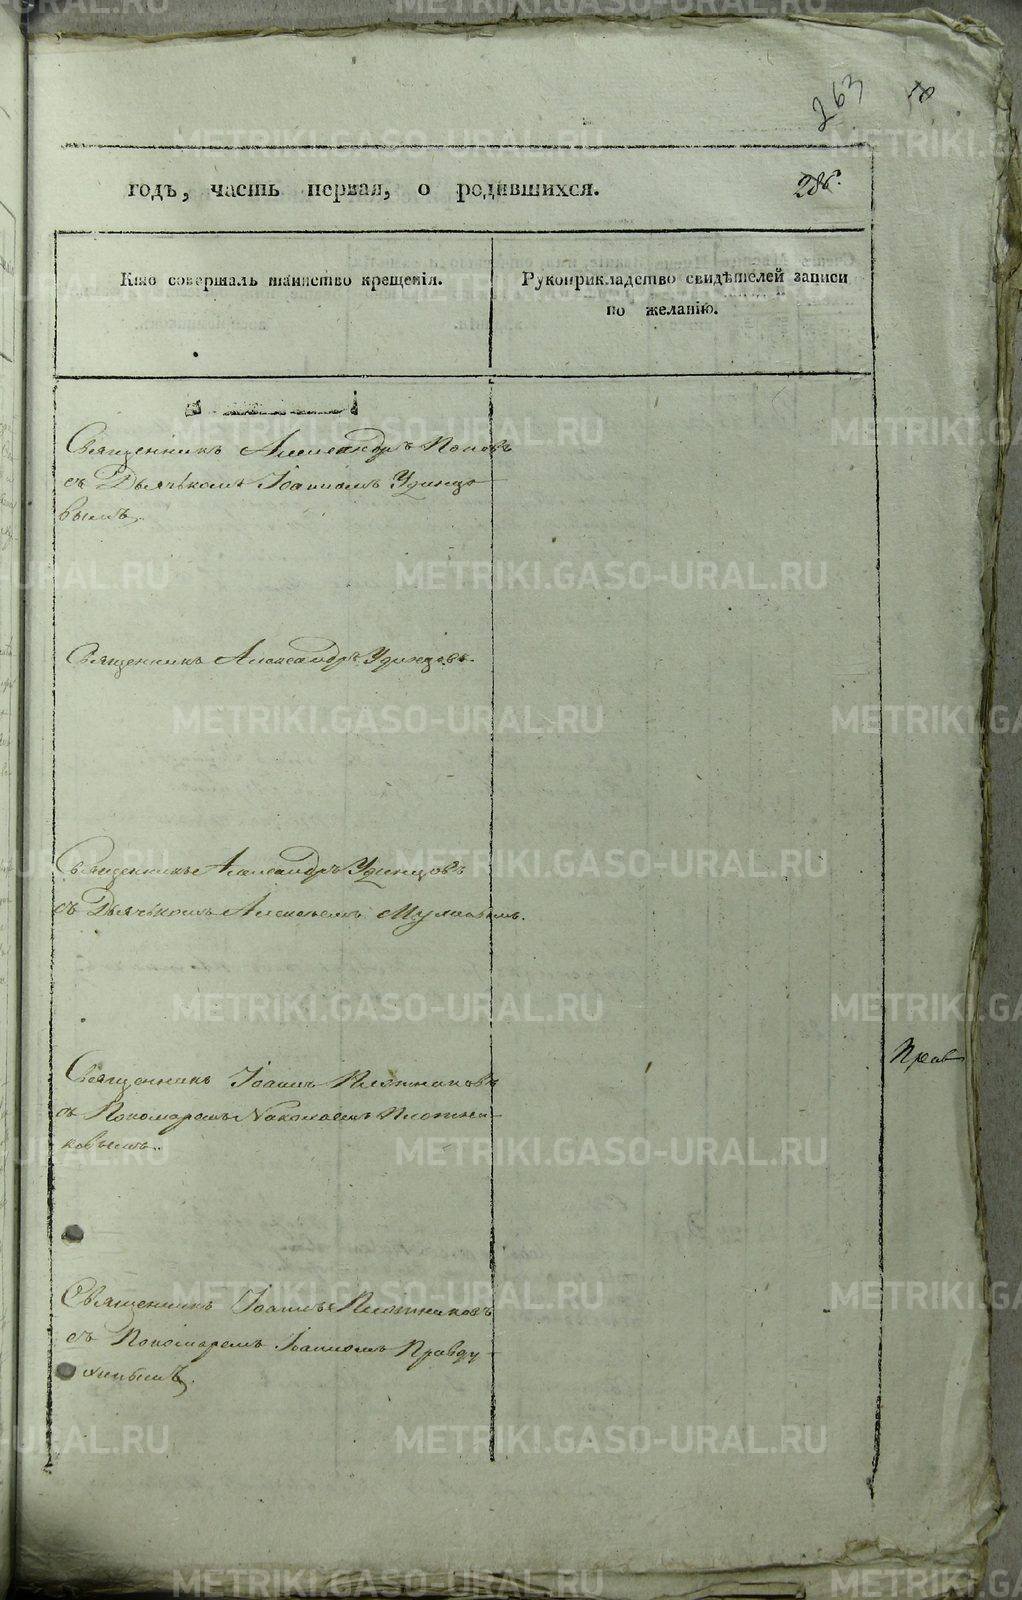 263
годъ, часть первая, о родившихся.
286.
Кто совершалъ таинство крещенія.
Рукоприкладство свидѣтелей записи
по желанію.
Священникъ Александръ Поповъ
съ Дьячькомъ Іоанномъ Удинцо
вымъ.
Священникъ Александръ Удинцовъ.
Священникъ Александръ Удинцовъ
съ Дьячькомъ Алексѣемъ
Священникъ Іоаннъ Плотниковъ
съ Пономаремъ Николаемъ Плотни-
ковымъ.
Священникъ Іоаннъ Плотниковъ
съ Пономаремъ Іоанномъ Правду-
хинымъ.
METRIKI.GASO-URAL.RU